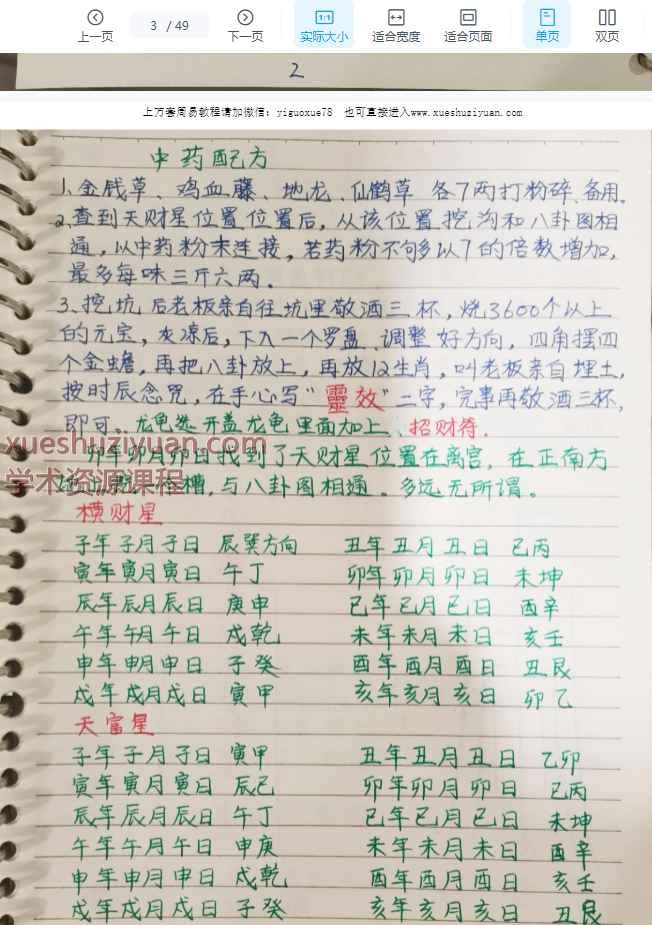 上一页
3 / 49
下一页
实际大小
适合宽度
适合页面
单页
双页
2
上万套周易教程请加微信：yiguoxue78 也可直接进入www.xueshuziyuan.com
中药配方
1、金钱草、鸡血藤、地龙、仙鹤草 各7两打粉碎、备用。
2、查到天财星位置位置后，从该位置挖沟和八卦图相
通，以中药粉末连接，若药粉不够多以7的倍数增加，
最多每味三斤六两。
3、挖坑后老板亲自往坑里敬酒三杯，烧3600个以上
的元宝，灰凉后，下入一个罗盘、调整好方向，四角摆四
个金蟾，再把八卦放上，再放12生肖，叫老板亲自埋土，
按时辰念咒，在手心写“靈效”二字，完事再敬酒三杯，
即可。龙龟选开盖龙龟里面加上、招财符.
卯年卯月卯日找到了天财星位置在离宫，在正南方
槽，与八卦图相通。多远无所谓。
xueshuziyuan.com
学术资源课程
横财星
子年子月子日 辰巽方向 丑年丑月丑日 巳丙
寅年寅月寅日 午丁 卯年卯月卯日 未坤
辰年辰月辰日 庚申 巳年巳月巳日 酉辛
午年午月午日 戌乾 未年未月未日 亥壬
申年申月申日 子癸 酉年酉月酉日 丑艮
戌年戌月戌日 寅甲 亥年亥月亥日 卯乙
天富星
子年子月子日 寅甲 丑年丑月丑日 乙卯
寅年寅月寅日 辰巳 卯年卯月卯日 巳丙
辰年辰月辰日 午丁 巳年巳月巳日 未坤
午年午月午日 申庚 未年未月未日 酉辛
申年申月申日 戌乾 酉年酉月酉日 亥壬
戌年戌月戌日 子癸 亥年亥月亥日 丑艮